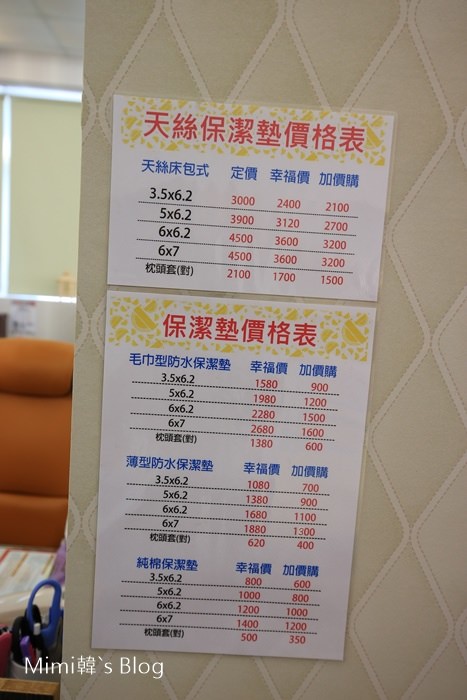 天絲保潔墊價格表
天絲床包式 定價 幸福價 加價購
3.5x6.2 3000 2400 2100
5x6.2 3900 3120 2700
6x6.2 4500 3600 3200
6x7 4500 3600 3200
枕頭套(對) 2100 1700 1500
保潔墊價格表
毛巾型防水保潔墊 幸福價 加價購
3.5x6.2 1580 900
5x6.2 1980 1200
6x6.2 2280 1500
6x7 2680 1600
枕頭套(對) 1380 600
薄型防水保潔墊 幸福價 加價購
3.5x6.2 1080 700
5x6.2 1380 900
6x6.2 1680 1100
6x7 1880 1300
枕頭套(對) 620 400
純棉保潔墊 幸福價 加價購
3.5x6.2 800 600
5x6.2 1000 800
6x6.2 1200 1000
6x7 1400 1200
枕頭套(對) 500 350
Mimi韓`s Blog